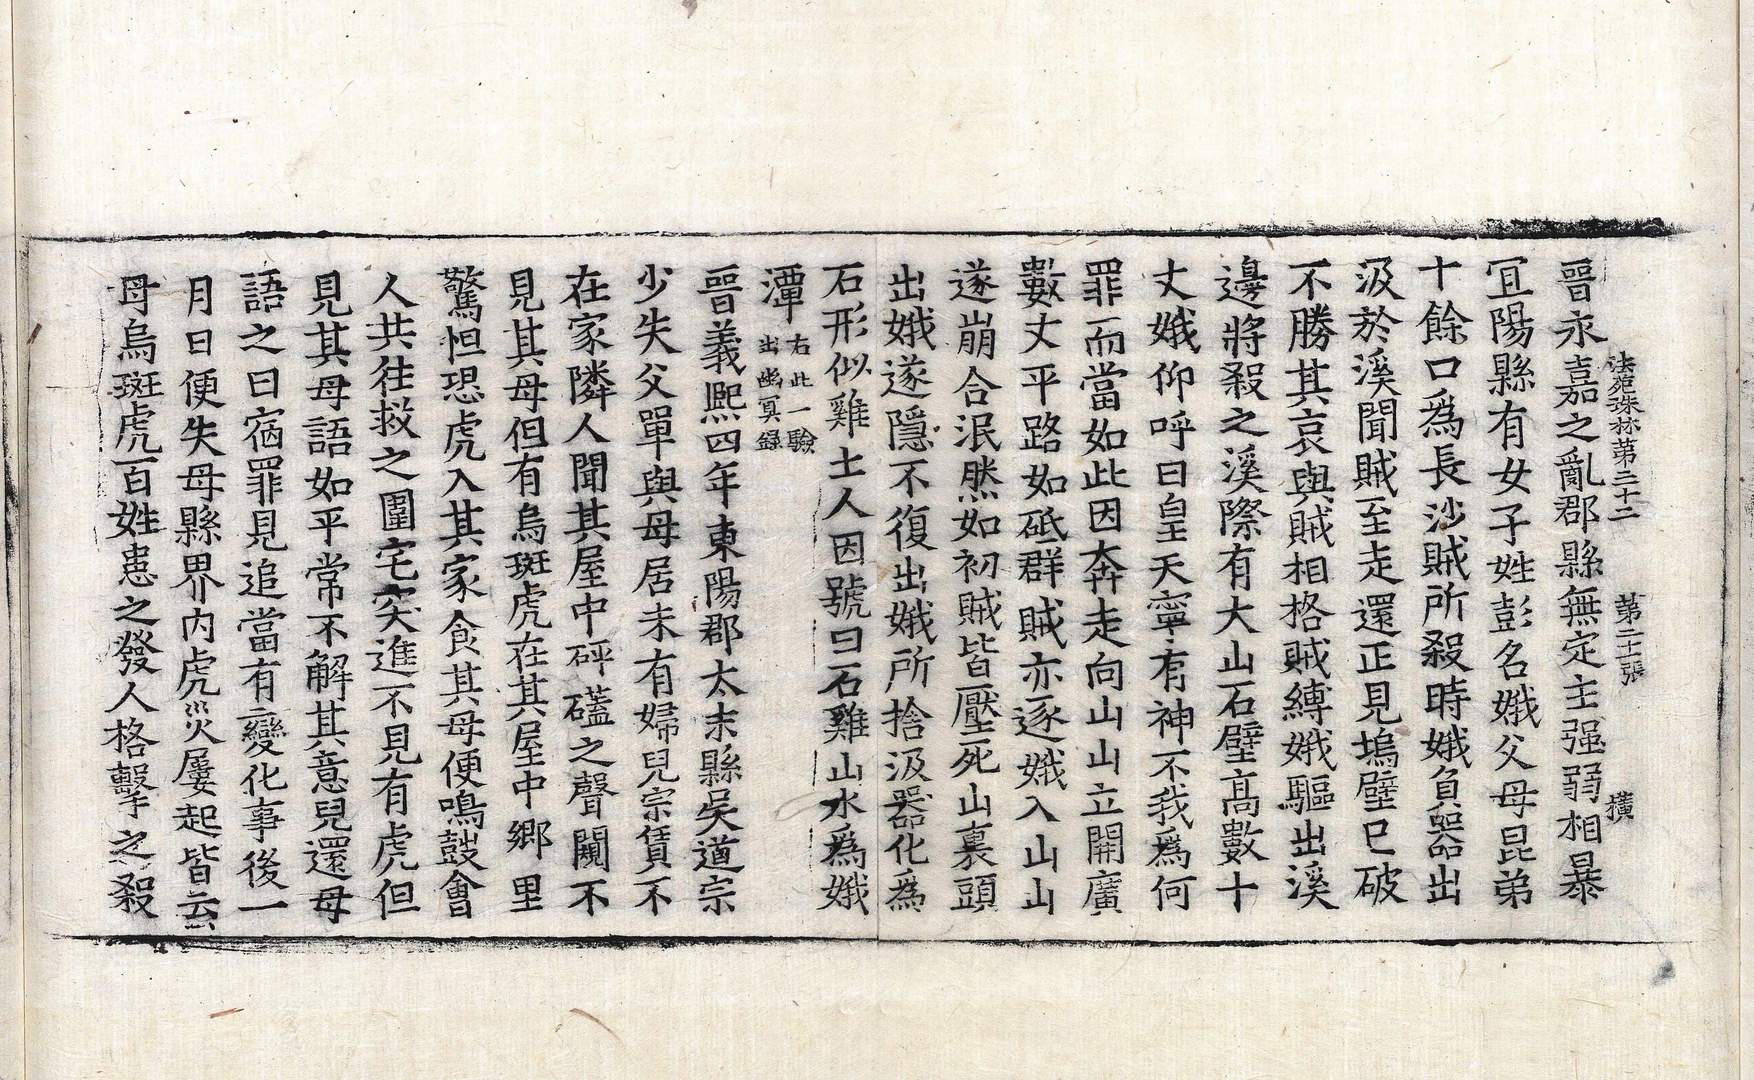 法苑珠林第三十二　第二十一張　橫
晉永嘉之亂郡縣無定主强弱相暴
宜陽縣有女子姓彭名娥父母昆弟
十餘口爲長沙賊所殺時娥負器出
汲於溪聞賊至走還正見塢壁已破
不勝其哀與賊相格賊縛娥驅出溪
邊將殺之溪際有大山石壁高數十
丈娥仰呼曰皇天寧有神不我爲何
罪而當如此因奔走向山山立開廣
數丈平路如砥群賊亦逐娥入山山
遂崩合泯然如初賊皆壓死山裏頭
出娥遂隱不復出娥所捨汲器化爲
石形似雞土人因號曰石雞山水爲娥
潭右此一驗出幽冥錄
晉義熙四年東陽郡太末縣吳道宗
少失父單與母居未有婦兒宗賃不
在家隣人聞其屋中砰磕之聲闚不
見其母但有烏斑虎在其屋中鄉里
驚怛恐虎入其家食其母便鳴鼓會
人共往救之圍宅突進不見有虎但
見其母語如平常不解其意兒還母
語之曰宿罪見追當有變化事後一
月日便失母縣界內虎災屢起皆云
母烏斑虎百姓患之發人格擊之殺